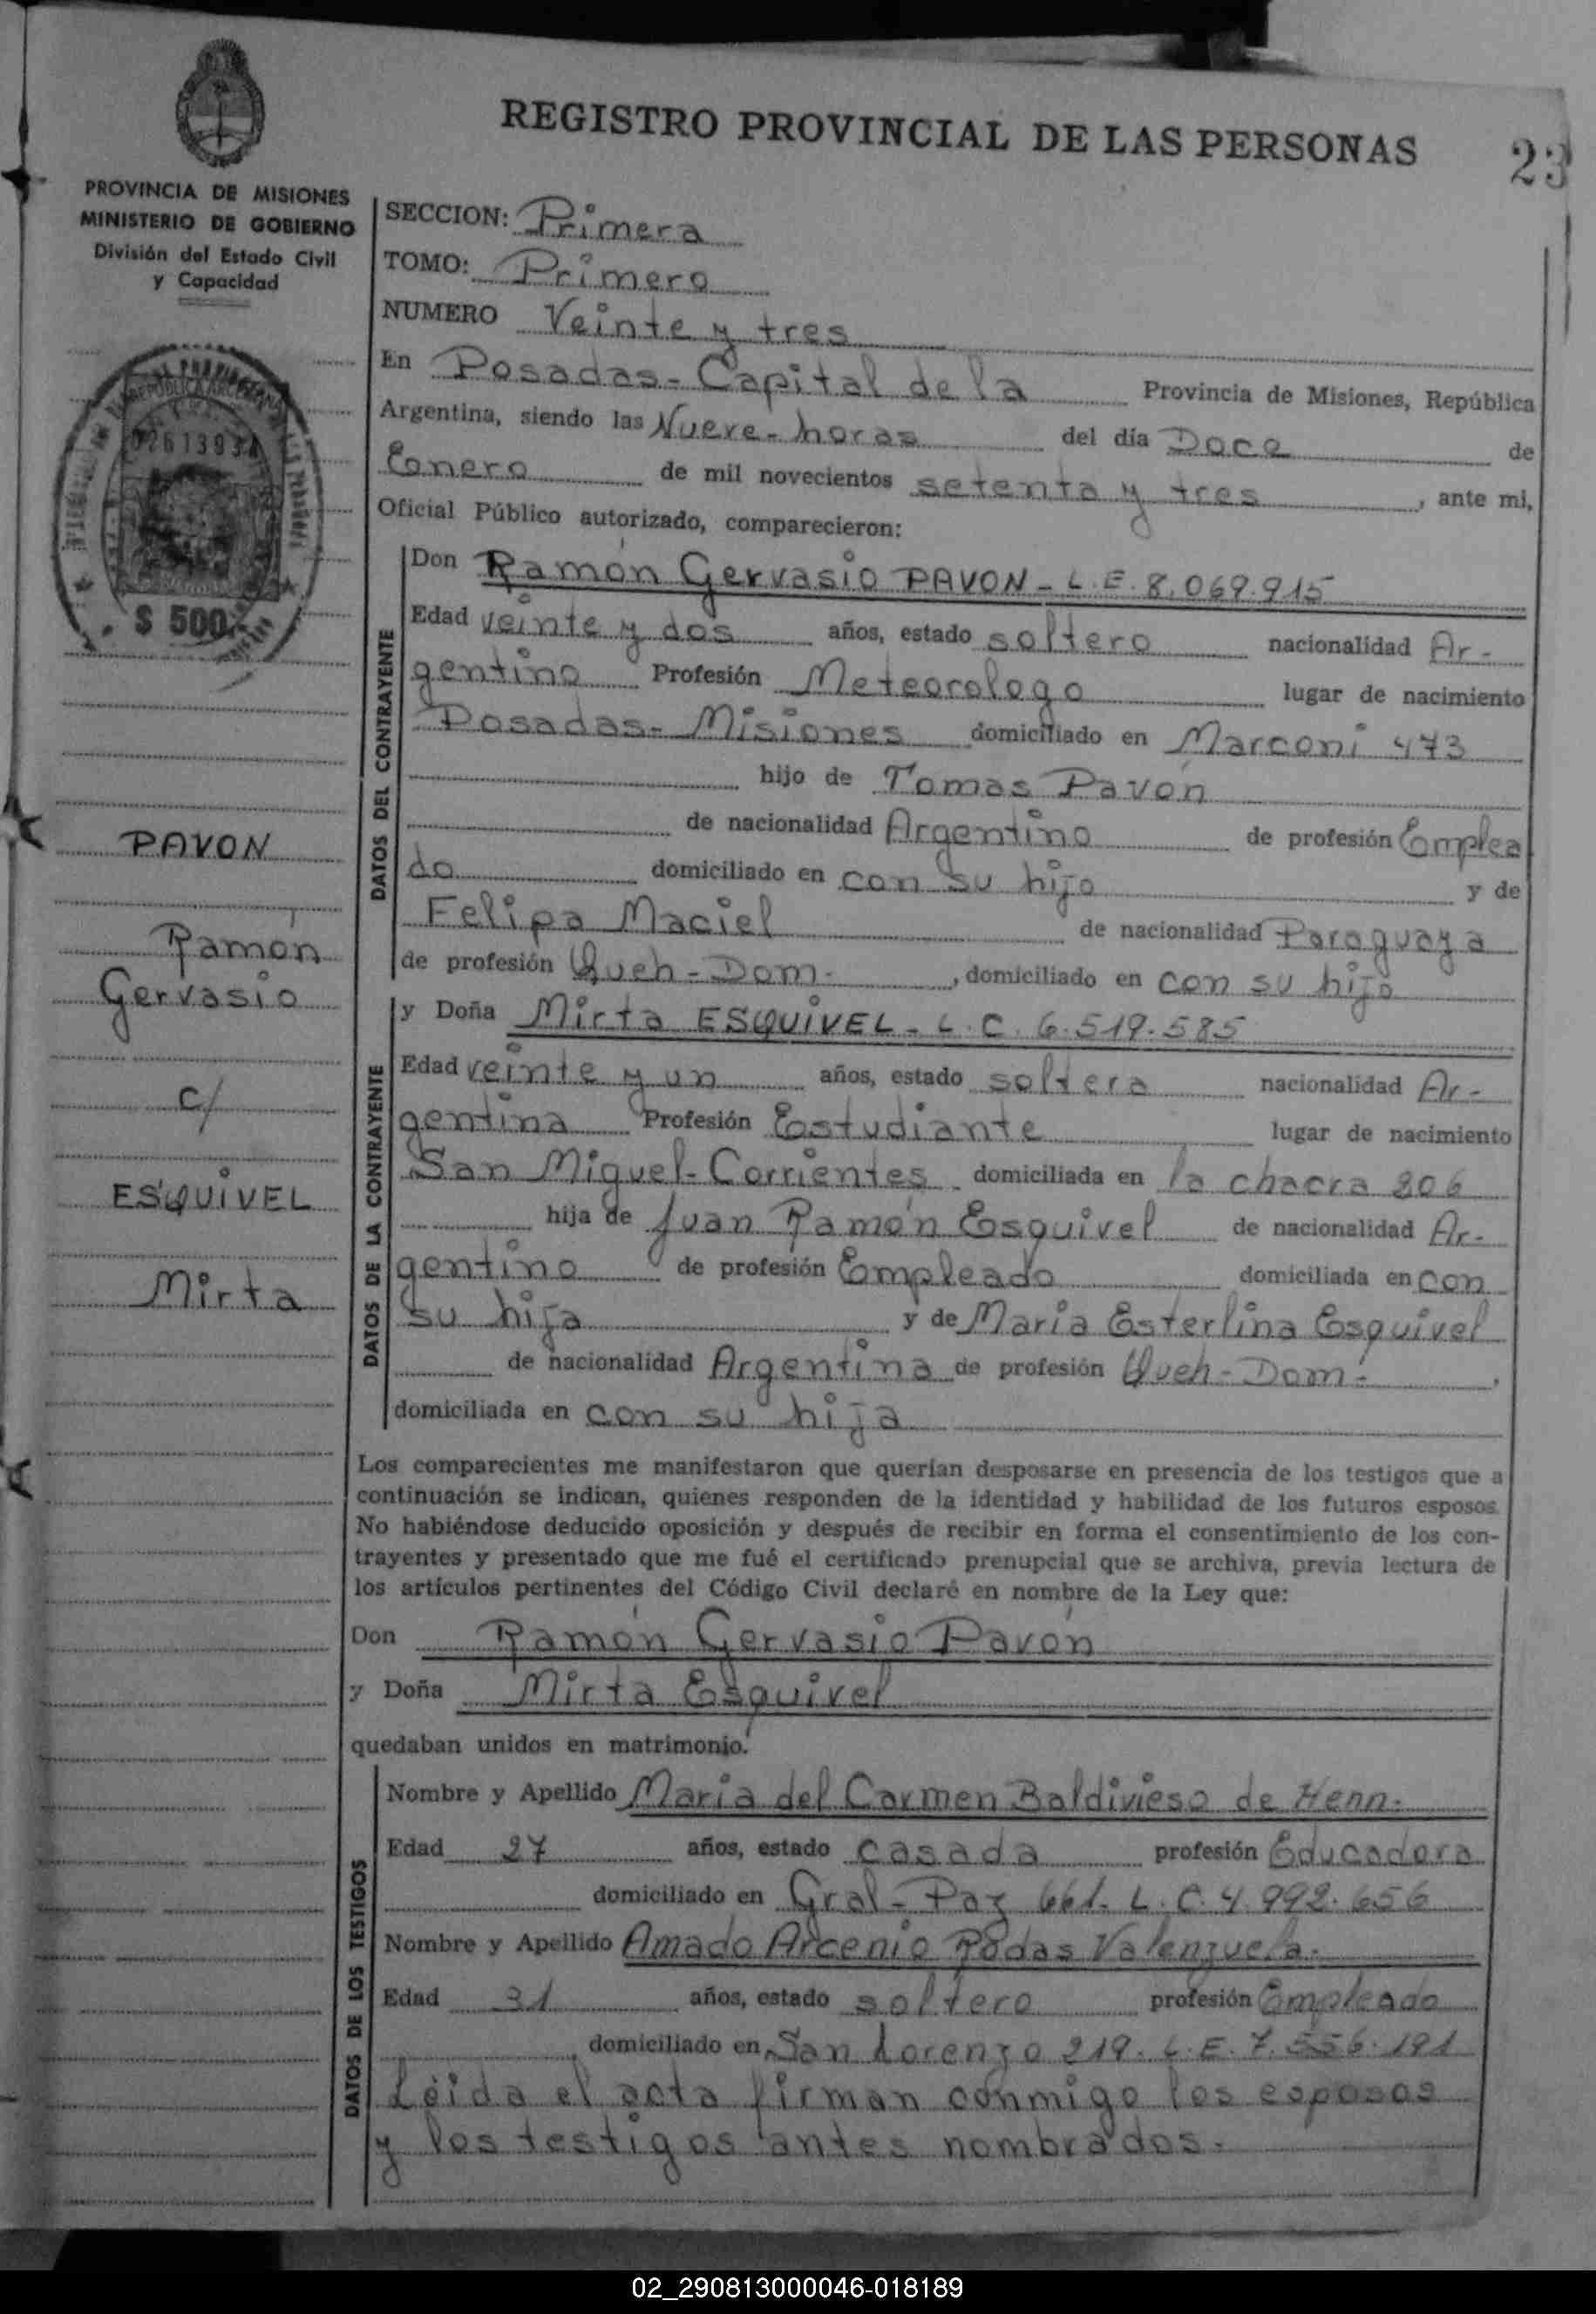 REGISTRO PROVINCIAL DE LAS PERSONAS
23
PROVINCIA DE MISIONES
MINISTERIO DE GOBIERNO
División del Estado Civil
y Capacidad
REPUBLICA ARGENTINA
$ 500
PAVON
Ramón
Gervasio
c/
ESQUIVEL
Mirta
SECCION: Primera
TOMO: Primero
NUMERO Veinte y tres
En Posadas - Capital de la Provincia de Misiones, República
Argentina, siendo las Nueve - horas del día Doce de
Enero de mil novecientos setenta y tres, ante mi,
Oficial Público autorizado, comparecieron:
DATOS DEL CONTRAYENTE
Don Ramón Gervasio PAVON - L.E. 8.069.915
Edad veinte y dos años, estado soltero nacionalidad Ar-
gentino Profesión Meteorologo lugar de nacimiento
Posadas - Misiones domiciliado en Marconi 473
hijo de Tomas Pavón
de nacionalidad Argentino de profesión Emplea
do domiciliado en con su hijo y de
Felipa Maciel de nacionalidad Paraguaya
de profesión Queh - Dom. , domiciliado en con su hijo
DATOS DE LA CONTRAYENTE
y Doña Mirta ESQUIVEL - L.C. 6.519.585
Edad veinte y un años, estado soltera nacionalidad Ar-
gentina Profesión Estudiante lugar de nacimiento
San Miguel - Corrientes domiciliada en la chacra 206
hija de Juan Ramón Esquivel de nacionalidad Ar-
gentino de profesión Empleado domiciliada en con
su hija y de Maria Esterlina Esquivel
de nacionalidad Argentina de profesión Queh - Dom.,
domiciliada en con su hija
Los comparecientes me manifestaron que querían desposarse en presencia de los testigos que a
continuación se indican, quienes responden de la identidad y habilidad de los futuros esposos.
No habiéndose deducido oposición y después de recibir en forma el consentimiento de los con-
trayentes y presentado que me fué el certificado prenupcial que se archiva, previa lectura de
los artículos pertinentes del Código Civil declaré en nombre de la Ley que:
Don Ramón Gervasio Pavón
y Doña Mirta Esquivel
quedaban unidos en matrimonio.
DATOS DE LOS TESTIGOS
Nombre y Apellido Maria del Carmen Baldivieso de Henn.
Edad 27 años, estado casada profesión Educadora
domiciliado en Gral - Paz 661. L.C. 4.992.656
Nombre y Apellido Amado Arcenio Rodas Valenzuela.
Edad 31 años, estado soltero profesión Empleado
domiciliado en San Lorenzo 219. L.E. 7.556.191
Léida el acta firman conmigo los esposos
y los testigos antes nombrados.
02_290813000046-018189